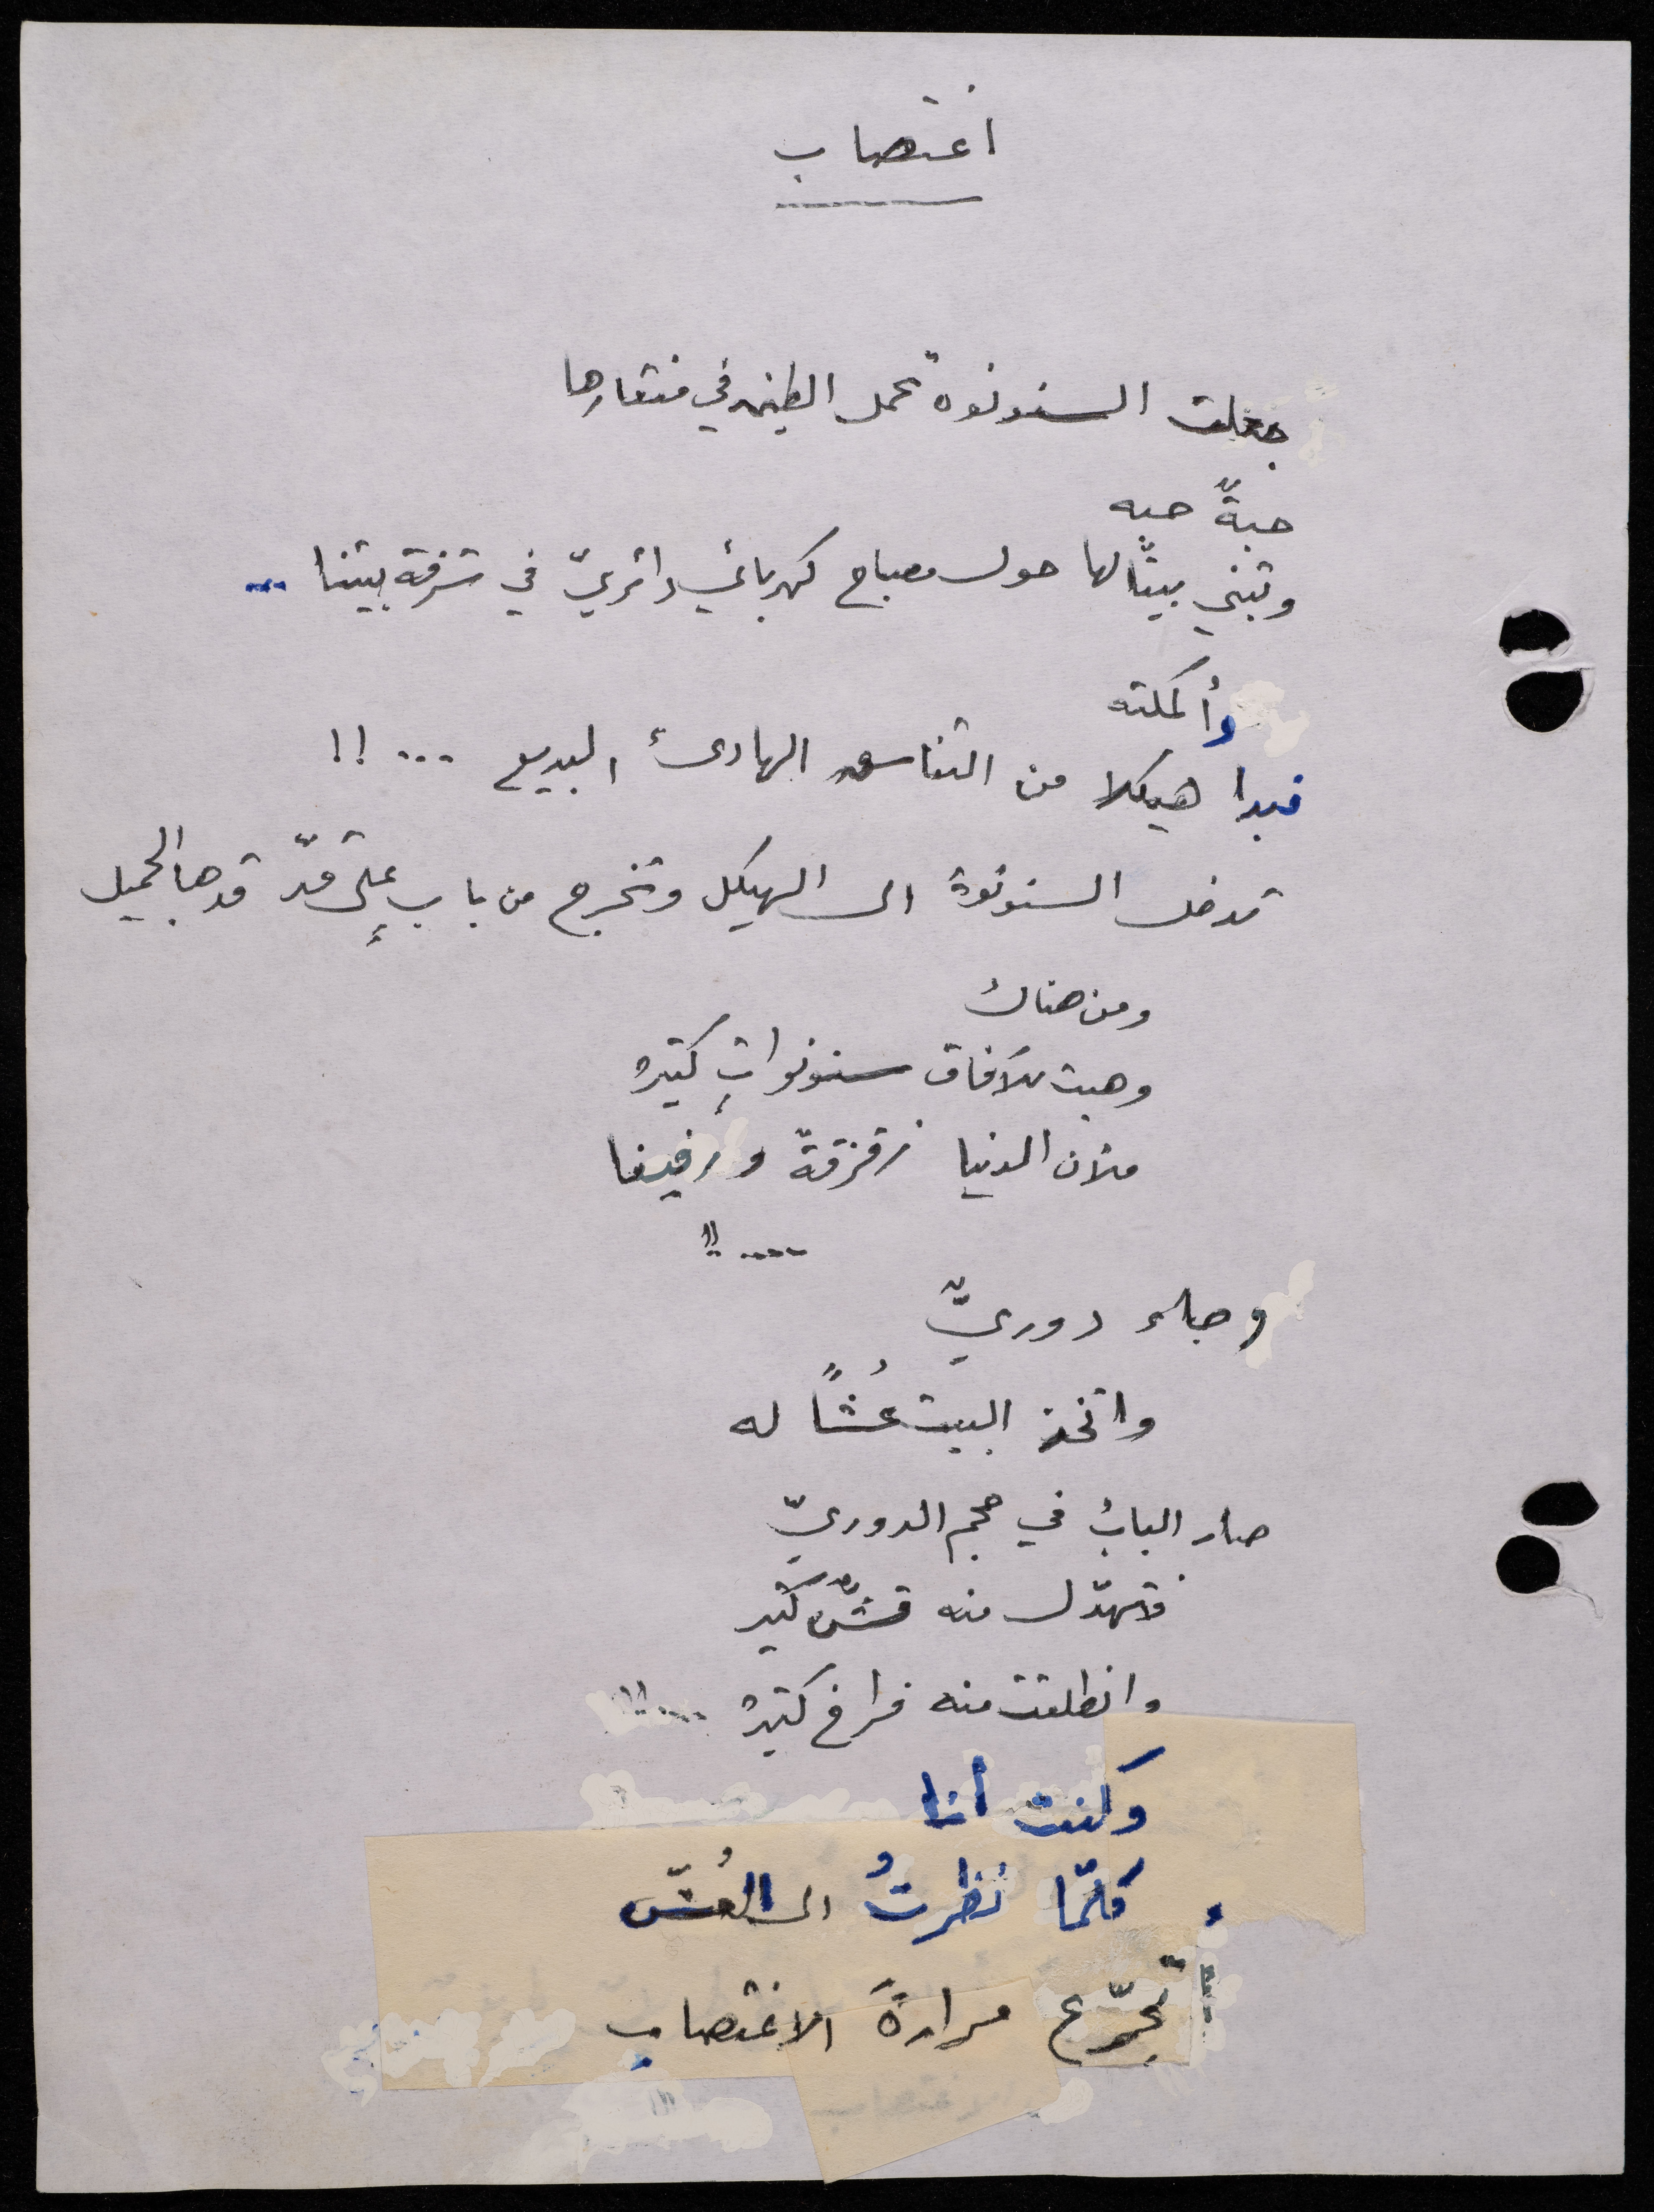 اغتصاب
جعلت السنونوة تحمل الطين في منقارها
حبةً حبه
وتبني بيتًا لها حول مصباح كهربائي دائريّ في شرفة بيتنا ...
وأكملته
فبدا هيكلا من التناسق الهادئ البديع ... !!
تدخل السنونوة الى الهيكل وتخرج من بابٍ على قدّ قدها الجميل
ومن هناك
وهبت للآفاق سنونواتٍ كثيره
ملأن الدنيا زقزقةً ورفيفا
.... !!
وجاء دوريٌّ
واتخذ البيت عُشًّا له
صار البابُ في حجم الدوريّ
فتهدّل منه قشٌّ كثير
وانطلقت منه فراخ كثيره ... !!
وكنت أنا
كلّما نظرتُ الى العُشّ
أتجرّع مرارةَ الاغتصاب